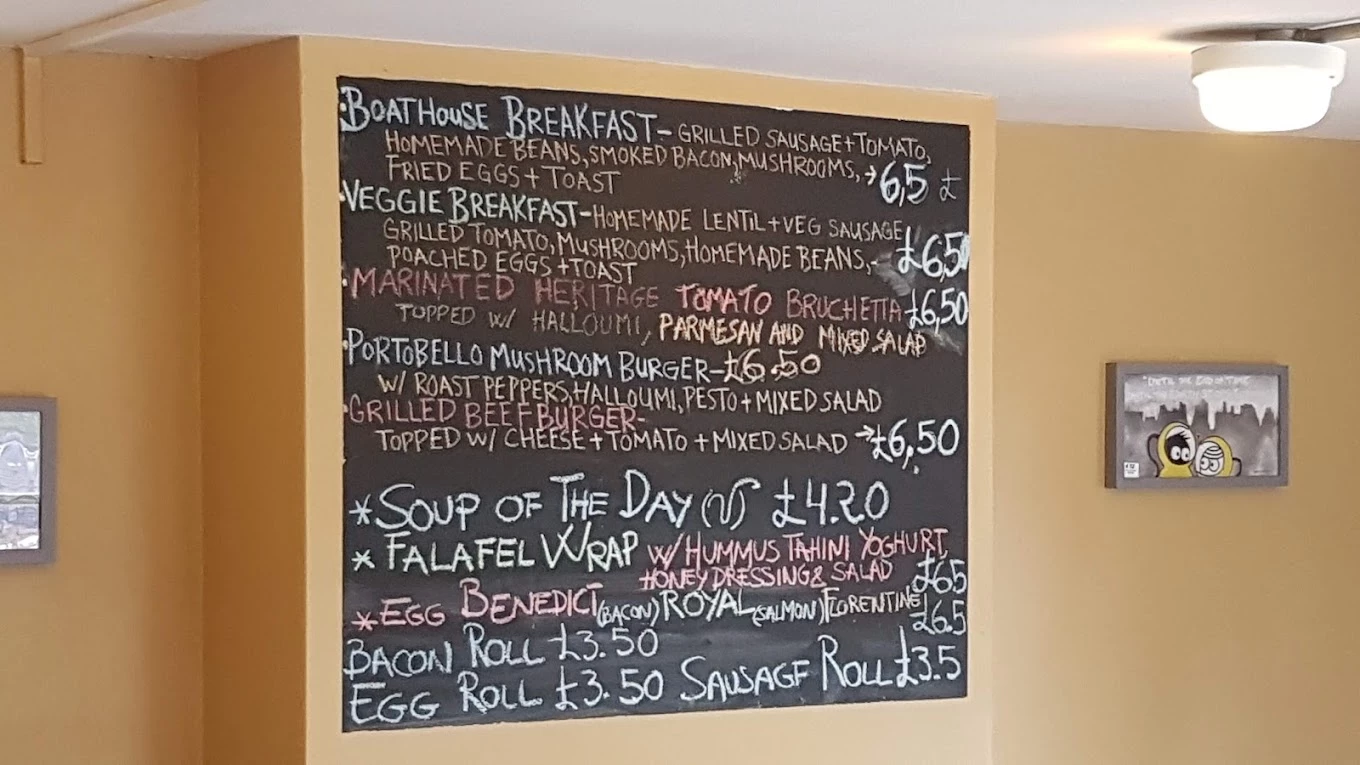 BOATHOUSE BREAKFAST - GRILLED SAUSAGE + TOMATO,
HOMEMADE BEANS, SMOKED BACON, MUSHROOMS, → 6,5 £
FRIED EGGS + TOAST
VEGGIE BREAKFAST - HOMEMADE LENTIL + VEG SAUSAGE
GRILLED TOMATO, MUSHROOMS, HOMEMADE BEANS, - £6,50
POACHED EGGS + TOAST
MARINATED HERITAGE TOMATO BRUCHETTA £6,50
TOPPED W/ HALLOUMI, PARMESAN AND MIXED SALAD
PORTOBELLO MUSHROOM BURGER - £6.50
W/ ROAST PEPPERS, HALLOUMI, PESTO + MIXED SALAD
GRILLED BEEF BURGER -
TOPPED W/ CHEESE + TOMATO + MIXED SALAD → £6,50
* SOUP OF THE DAY £4.20
* FALAFEL WRAP W/ HUMMUS TAHINI YOGHURT,
HONEY DRESSING & SALAD £6.5
* EGG BENEDICT (BACON) ROYAL (SALMON) FLORENTINE £6.5
BACON ROLL £3.50
EGG ROLL £3.50 SAUSAGE ROLL £3.5
"UNTIL THE END OF TIME